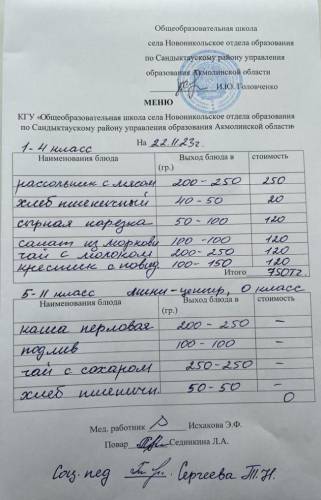 Общеобразовательная школа
села Новоникольское отдела образования
по Сандыктаускому району управления
образования Акмолинской области
И.Ю. Головченко
МЕНЮ
КГУ «Общеобразовательная школа села Новоникольское отдела образования
по Сандыктаускому району управления образования Акмолинской области»
1-4 класс На 22.11.23г.
Наименования блюда Выход блюда в (гр.) стоимость
рассольник с мясом 200-250 250
хлеб пшеничный 40-50 20
сырная нарезка 50-100 120
салат из моркови 100-100 120
чай с молоком 200-250 120
крестник с повид. 100-150 120
Итого 750тг.
5-11 класс мини-центр, 0 класс
Наименования блюда Выход блюда в (гр.) стоимость
каша перловая 200-250 -
подлив 100-100 -
чай с сахаром 250-250 -
хлеб пшеничн. 50-50 -
0
Мед. работник Исхакова Э.Ф.
Повар Сединкина Л.А.
Соц. пед Сергеева Т.Н.